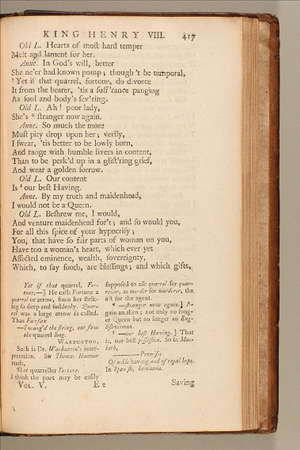 KING HENRY VIII. 417
Old L. Hearts of most hard temper
Melt and lament for her.
Anne. In God's will, better
She ne'er had known pomp; though 't be temporal,
Yet if that quarrel, fortune, do divorce
It from the bearer, 'tis a suff'rance panging
As soul and body's sev'ring.
Old L. Ah! poor lady,
She's stranger now again.
Anne. So much the more
Must pity drop upon her; verily,
I swear, 'tis better to be lowly born,
And range with humble livers in content,
Than to be perk'd up in a glist'ring grief,
And wear a golden sorrow.
Old L. Our content
Is our best Having.
Anne. By my troth and maidenhead,
I would not be a Queen.
Old L. Beshrew me, I would,
And venture maidenhead for't; and so would you,
For all this spice of your hypocrisy;
You, that have so fair parts of woman on you,
Have too a woman's heart, which ever yet
Affected eminence, wealth, sovereignty,
Which, to say sooth, are blessings; and which gifts,
Yet if that quarrel, For-
tune,—] He calls Fortune a
quarrel or arrow, from her strik-
ing so deep and suddenly. Quar-
rel was a large arrow so called.
Thus Fairfax
—Twang'd the string, out flew
the quarrel long.
WARBURTON.
Such is Dr. Warburton's inter-
pretation. Sir Thomas Hanmer
reads,
That quarreller Fortune.
I think the poet may be easily
supposed to use quarrel for quar-
reller, as murder for murderer, the
act for the agent.
—stranger now again.] A-
gain an alien; not only no long-
er Queen but no longer an Eng-
lishwoman.
—our best Having.] That
is, our best possession. So in Mac-
beth,
Of noble having and of royal hope.
In Spanish, hazienda.
VOL. V. E e Saving